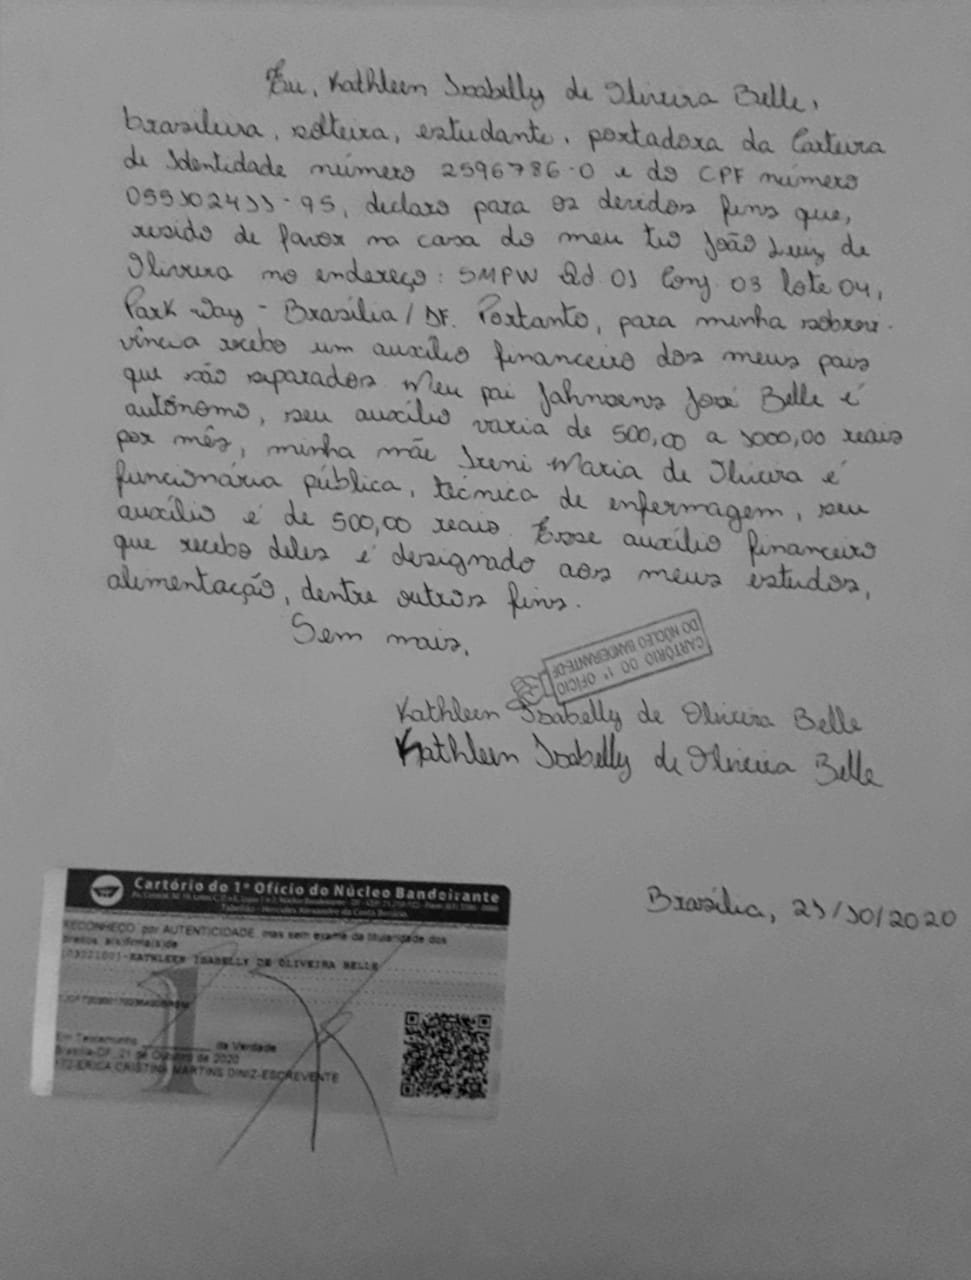 Eu, Kathleen Isabelly de Oliveira Belle,
brasileira, solteira, estudante, portadora da Carteira
de Identidade número 2596786-0 e do CPF número
055102411-95, declaro para os devidos fins que,
resido de favor na casa do meu tio João Luiz de
Oliveira no endereço: SMPW Qd 01 Conj. 03 lote 04,
Park Way - Brasília/DF. Portanto, para minha sobrevi-
vência recebo um auxílio financeiro dos meus pais
que são separados Meu pai José Belle é
autônomo, seu auxílio varia de 500,00 a 1000,00 reais
por mês, minha mãe Ireni Maria de Oliveira é
funcionária pública, técnica de enfermagem, seu
auxílio é de 500,00 reais. Esse auxílio financeiro
que recebo deles é designado aos meus estudos,
alimentação, dentre outros fins.
Sem mais,
CARTÓRIO DO 1º OFÍCIO
DO NÚCLEO BANDEIRANTE-DF
Kathleen Isabelly de Oliveira Belle
Kathleen Isabelly de Oliveira Belle
Brasília, 21/10/2020
Cartório do 1º Ofício do Núcleo Bandeirante
RECONHEÇO por AUTENTICIDADE, mas sem exame da titularidade dos
KATHLEEN ISABELLY DE OLIVEIRA BELLE
Em Testemunho da Verdade
Brasília-DF, 21 de Outubro de 2020
172-ERICA CRISTINA MARTINS DINIZ-ESCREVENTE